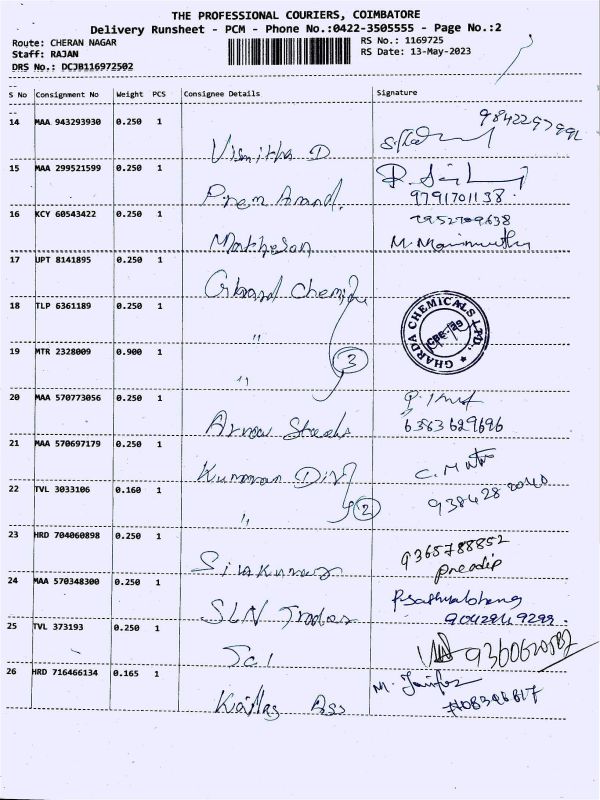 THE PROFESSIONAL COURIERS, COIMBATORE
Delivery Runsheet - PCM - Phone No.:0422-3505555 - Page No.:2
Route: CHERAN NAGAR RS No.: 1169725
Staff: RAJAN RS Date: 13-May-2023
DRS No.: DCJB116972502
S No Consignment No Weight PCS Consignee Details Signature
14 MAA 943293930 0.250 1 9842297991
Vismitha D
15 MAA 299521599 0.250 1
Prem Anand. 9791701138
16 KCY 60543422 0.250 1
Makhesan M. Marimuthu
17 UPT 8141895 0.250 1
Gharda Chemicals
18 TLP 6361189 0.250 1
"
GHARDA CHEMICALS LTD.,
19 MTR 2328009 0.900 1 3
"
20 MAA 570773056 0.250 1
Arrow Steels 6363629696
21 MAA 570697179 0.250 1
Kumaran Dist C. M
22 TVL 3033106 0.160 1 9384280040
" 2
23 HRD 704060898 0.250 1 9365788852
Sivakumar Pradip
24 MAA 570348300 0.250 1
SLN Traders 9042849299.
25 TVL 373193 0.250 1
Sai
26 HRD 716466134 0.165 1 M.
Kailas Ass